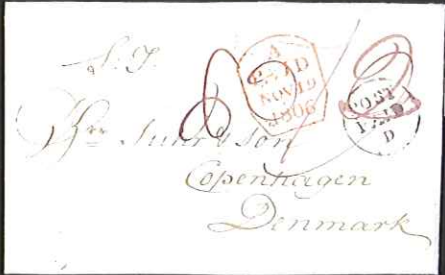 A
PAID
NOV 19
1806
POST
PAID
D
& Son
Copenhagen
Denmark